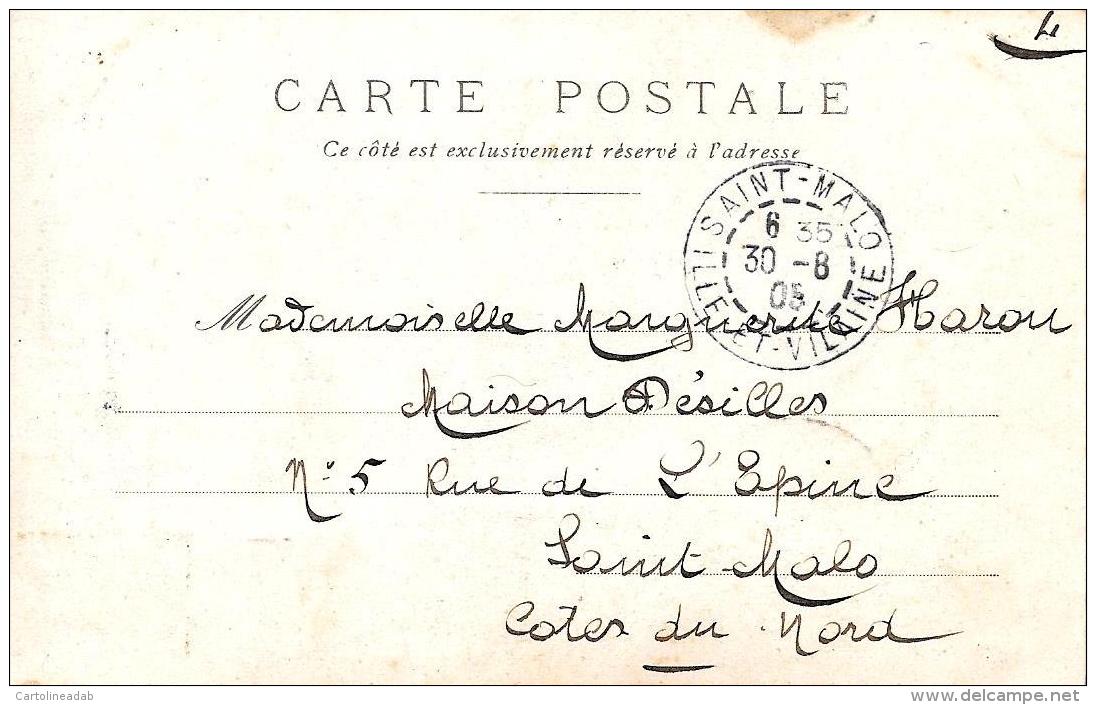 4
CARTE POSTALE
Ce côté est exclusivement réservé à l'adresse
SAINT-MALO
6 35
30 -8
05
ILLE-ET-VILAINE
Mademoiselle Marguerite Harou
Maison Désilles
N° 5 Rue de L'Epine
Saint Malo
Cotes du Nord
Cartolineadab
delcampe.net